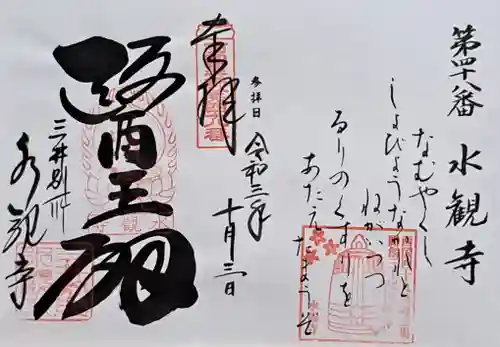 第四十八番 水観寺
なむやくし
しょびょうなかれと
ねがいつつ
るりのくすりを
あたえたまうぞ
参拝日 令和三年
十月三日
奉拝
醫王殿
水観寺
三井別所
水観寺